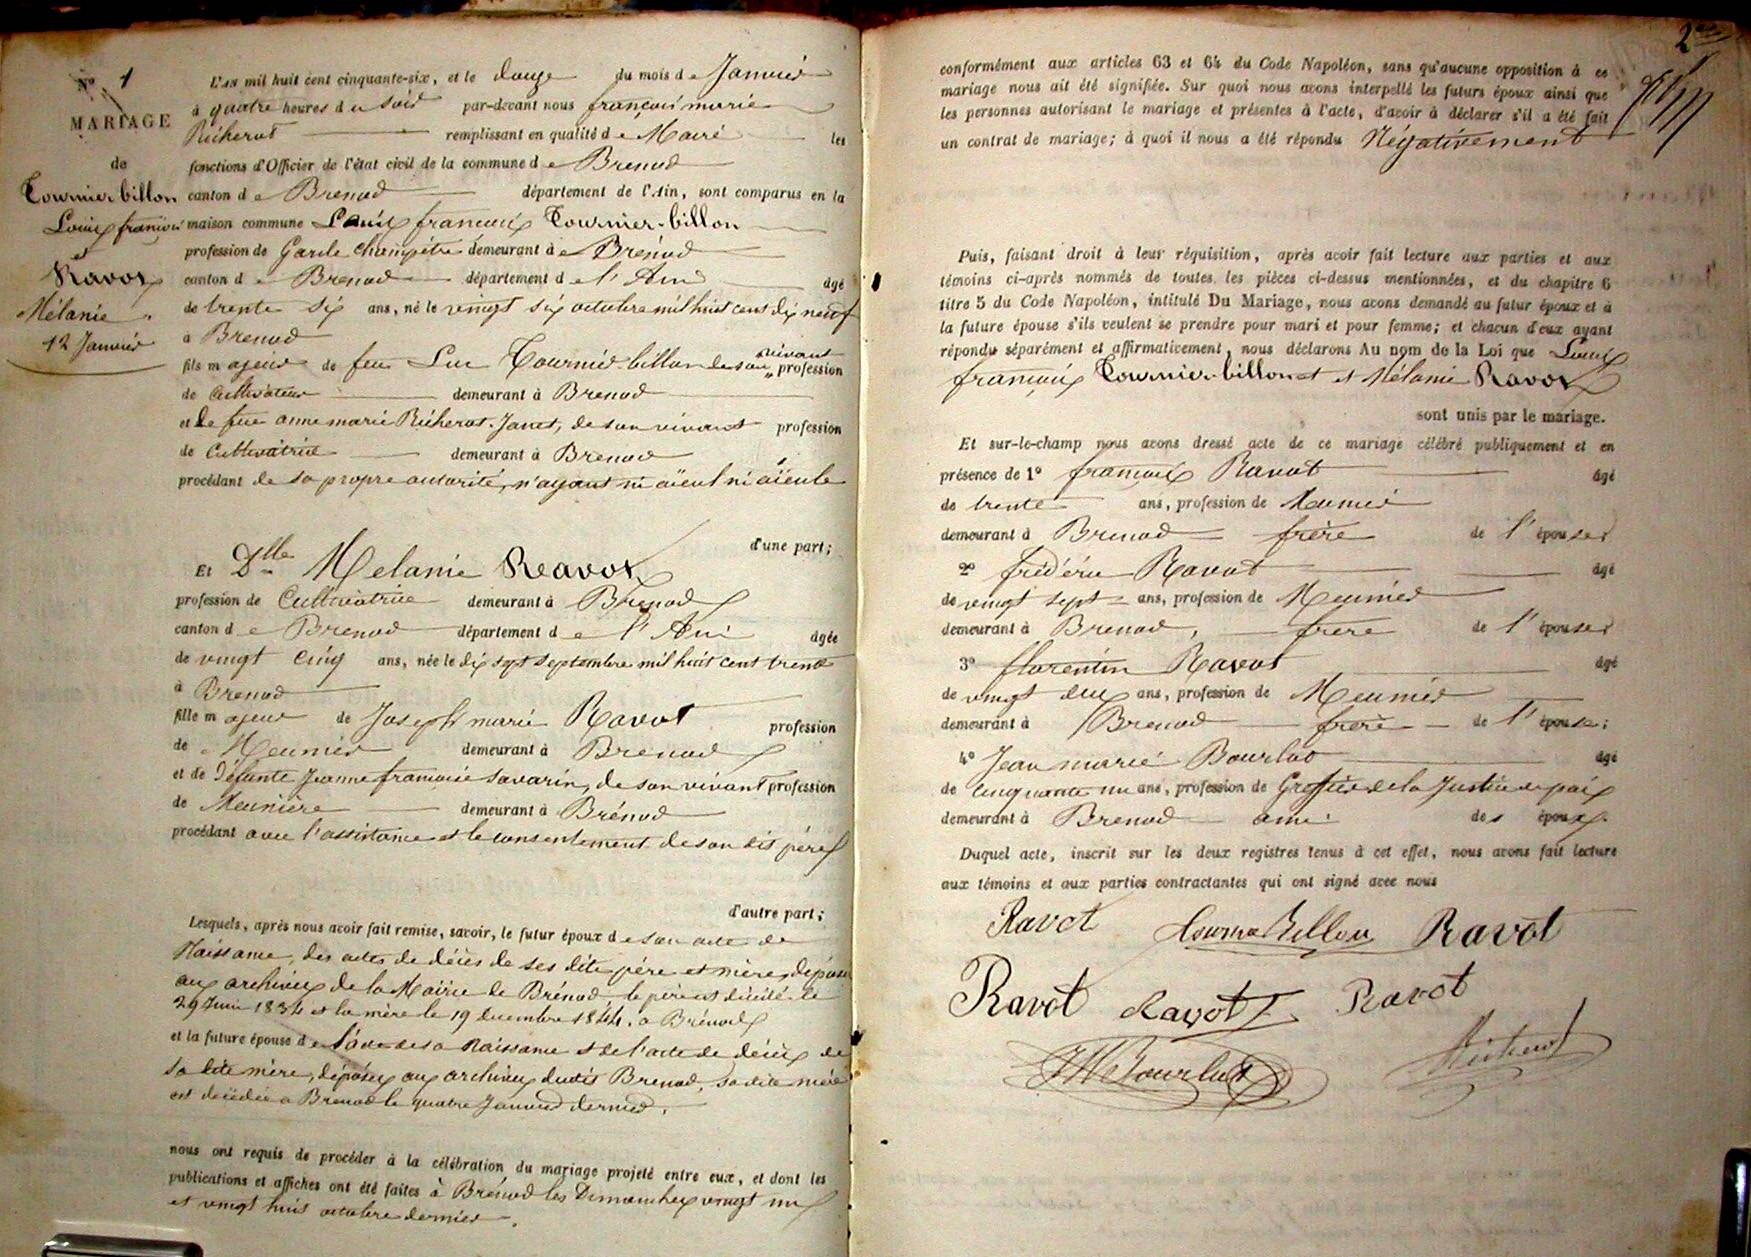 N° 1
MARIAGE
de
Tournier-billon
Louis françois
et
Ravot
Mélanie.
12 Janvier
L'AN mil huit cent cinquante-six, et le douze du mois de Janvier
à quatre heures du soir par-devant nous françois marie
Richerot remplissant en qualité de Maire les
fonctions d'Officier de l'état civil de la commune de Brenod
canton de Brenod département de l'Ain, sont comparus en la
maison commune Louis françois Tournier-billon
profession de Garde Champêtre demeurant à Brénod
canton de Brenod département de l'Ain âgé
de trente six ans, né le vingt six octobre mil huit cent dix neuf
à Brenod
fils majeur de feu Luc Tournier-billon de son vivant profession
de Cultivateur demeurant à Brenod
et de feue anne marie Richerot-Janet, de son vivant profession
de Cultivatrice demeurant à Brenod
procédant de sa propre autorité, n'ayant ni aïeul ni aïeule
d'une part;
Et Dlle Melanie Ravot
profession de Cultivatrice demeurant à Brenod
canton de Brenod département de l'Ain âgée
de vingt cinq ans, née le dix sept septembre mil huit cent trente
à Brenod
fille majeur de Joseph marie Ravot profession
de Meunier demeurant à Brenod
et de défunte Jeanne françoise Savarin, de son vivant profession
de Meunière demeurant à Brénod
procédant avec l'assistance et le consentement de son dit père
d'autre part;
Lesquels, après nous avoir fait remise, savoir, le futur époux de son acte de
Naissance, des actes de décès de ses dits père et mère, déposés
aux archives de la Mairie de Brénod, le père est décédé le
29 Juin 1834 et la mère le 19 decembre 1844. à Brénod
et la future épouse de l'acte de sa Naissance et de l'acte de décès de
sa dite mère, déposés aux archives dudit Brenod, sa dite mère
est décédée à Brenod le quatre Janvier dernier.
nous ont requis de procéder à la célébration du mariage projeté entre eux, et dont les
publications et affiches ont été faites à Brénod les Dimanches vingt un
et vingt huit octobre dernier.
2
conformément aux articles 63 et 64 du Code Napoléon, sans qu'aucune opposition à ce
mariage nous ait été signifiée. Sur quoi nous avons interpellé les futurs époux ainsi que
les personnes autorisant le mariage et présentes à l'acte, d'avoir à déclarer s'il a été fait
un contrat de mariage; à quoi il nous a été répondu Négativement
Puis, faisant droit à leur réquisition, après avoir fait lecture aux parties et aux
témoins ci-après nommés de toutes les pièces ci-dessus mentionnées, et du chapitre 6
titre 5 du Code Napoléon, intitulé Du Mariage, nous avons demandé au futur époux et à
la future épouse s'ils veulent se prendre pour mari et pour femme; et chacun d'eux ayant
répondu séparément et affirmativement, nous déclarons Au nom de la Loi que Louis
françois Tournier-billon et Mélanie Ravot
sont unis par le mariage.
Et sur-le-champ nous avons dressé acte de ce mariage célébré publiquement et en
présence de 1° françois Ravot âgé
de trente ans, profession de Meunier
demeurant à Brenod frère de l'épouse
2° frédéric Ravot âgé
de vingt sept ans, profession de Meunier
demeurant à Brenod, frère de l'épouse
3° florentin Ravot âgé
de vingt deux ans, profession de Meunier
demeurant à Brenod frère de l'épouse;
4° Jean marie Bourlot âgé
de Cinquante un ans, profession de Greffier de la Justice de paix
demeurant à Brenod ami des époux.
Duquel acte, inscrit sur les deux registres tenus à cet effet, nous avons fait lecture
aux témoins et aux parties contractantes qui ont signé avec nous
Ravot Tournier Billon Ravot
Ravot Ravot Ravot
JM Bourlot Richerot